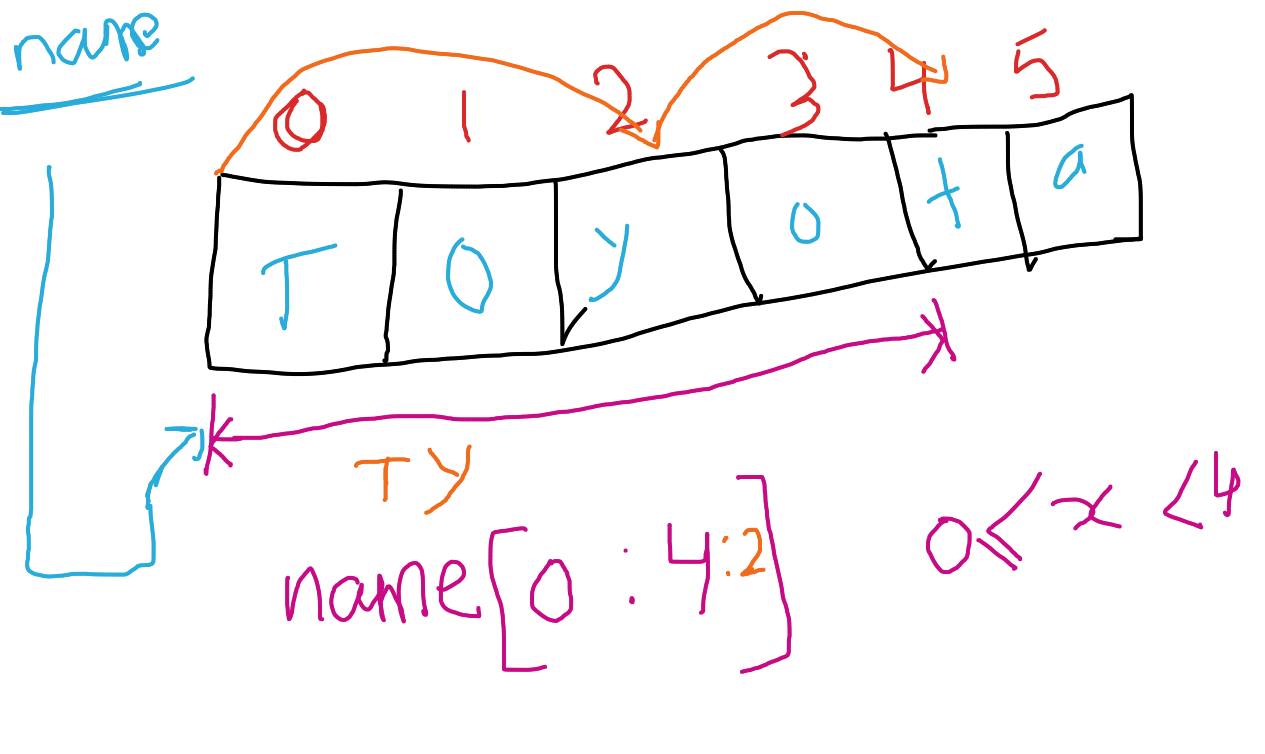 name
0 1 2 3 4 5
T O y o t a
T y
name[0 : 4:2]
0 ≤ x < 4